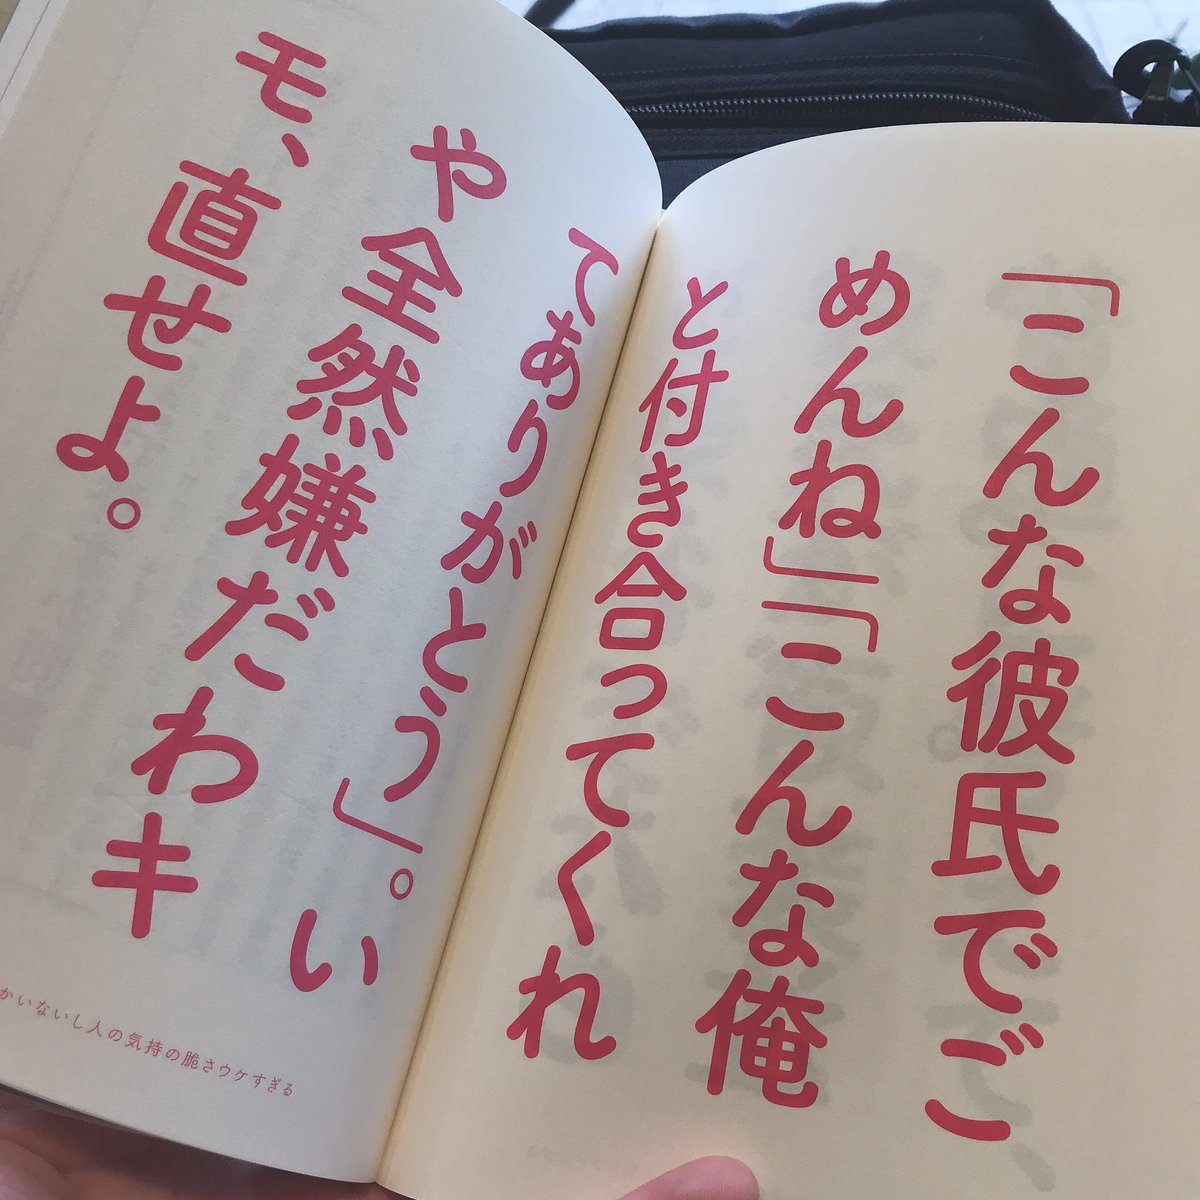 「こんな彼氏でご
めんね」「こんな俺
と付き合ってくれ
てありがとう」。い
や全然嫌だわキ
モ、直せよ。
かいないし人の気持の脆さウケすぎる